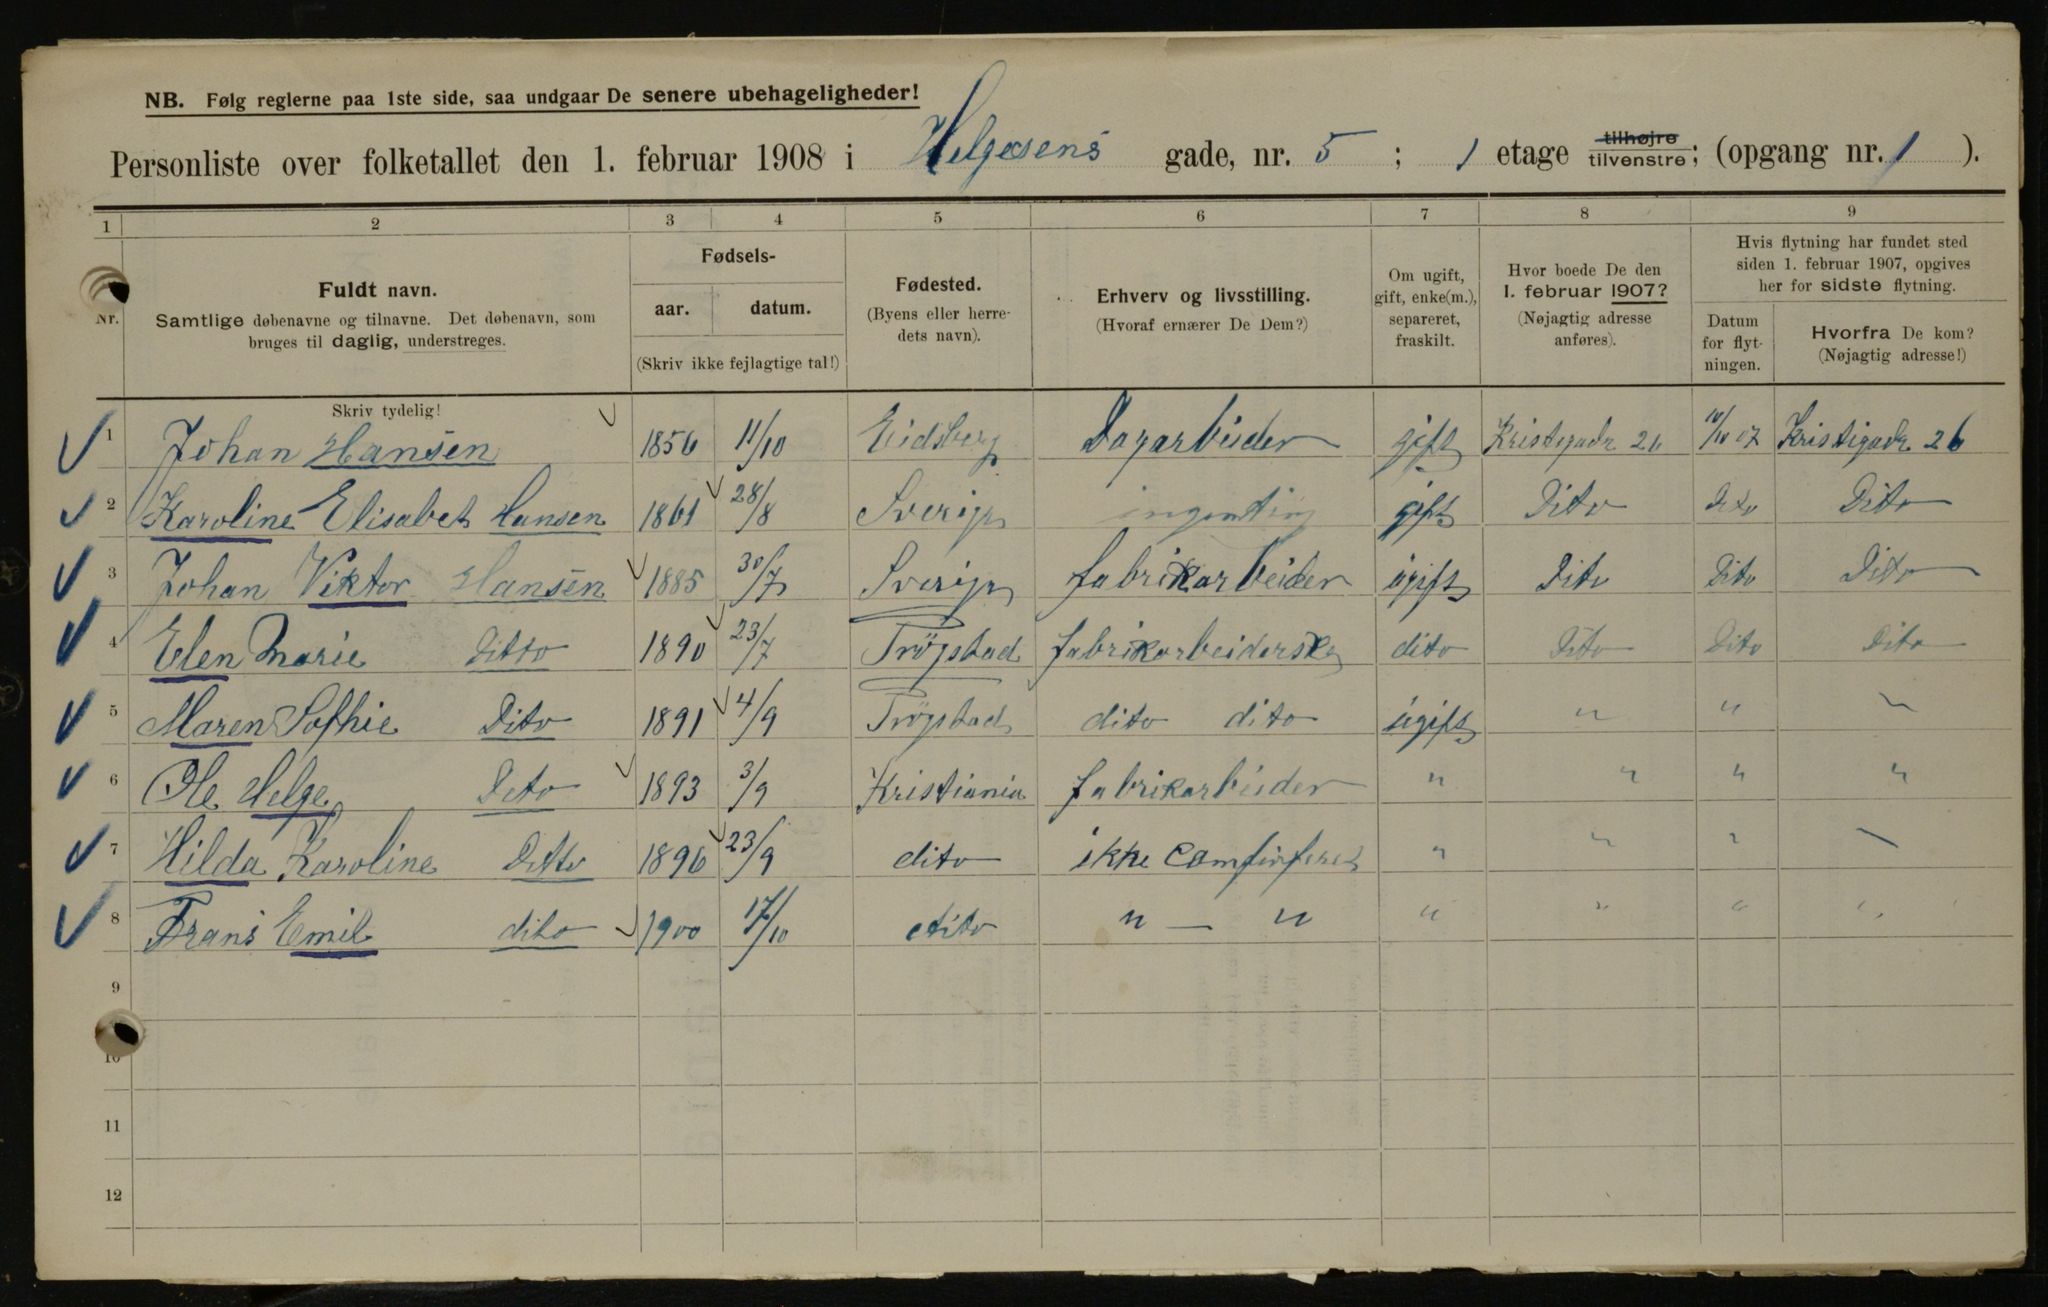 NB. Følg reglerne paa 1ste side, saa undgaar De senere ubehageligheder!
Personliste over folketallet den 1. februar 1908 i Helgesens gade, nr. 5 ; 1 etage tilhøjre tilvenstre; (opgang nr. 1 ).
1 2 3 4 5 6 7 8 9
Nr.
Fuldt navn.
Samtlige døbenavne og tilnavne. Det døbenavn, som
bruges til daglig, understreges.
Fødsels-
aar. datum.
(Skriv ikke fejlagtige tal!)
Fødested.
(Byens eller herre-
dets navn).
Erhverv og livsstilling.
(Hvoraf ernærer De Dem?)
Om ugift,
gift, enke(m.),
separeret,
fraskilt.
Hvor boede De den
1. februar 1907?
(Nøjagtig adresse
anføres).
Hvis flytning har fundet sted
siden 1. februar 1907, opgives
her for sidste flytning.
Datum
for flyt-
ningen.
Hvorfra De kom?
(Nøjagtig adresse!)
Skriv tydelig!
1 Johan Hansen 1856 11/10 Eidsberg Dagarbeider gift Kristigade 26 10/10 07 Kristigade 26
2 Karoline Elisabet Hansen 1861 28/8 Sverige ingenting gift Dito Dito Dito
3 Johan Viktor Hansen 1885 30/7 Sverige fabrikarbeider ugift Dito Dito Dito
4 Elen Marie Ditto 1890 23/7 Trögstad fabrikarbeiderske dito Dito Dito Dito
5 Maren Sofhie Dito 1891 4/9 Trögstad dito dito ugift " " "
6 Ole Helge Dito 1893 3/9 Kristiania fabrikarbeider " " " "
7 Hilda Karoline Ditto 1896 23/9 dito ikke " " "
8 Frans Emil dito 1900 17/10 dito " — " " " " "
9
10
11
12